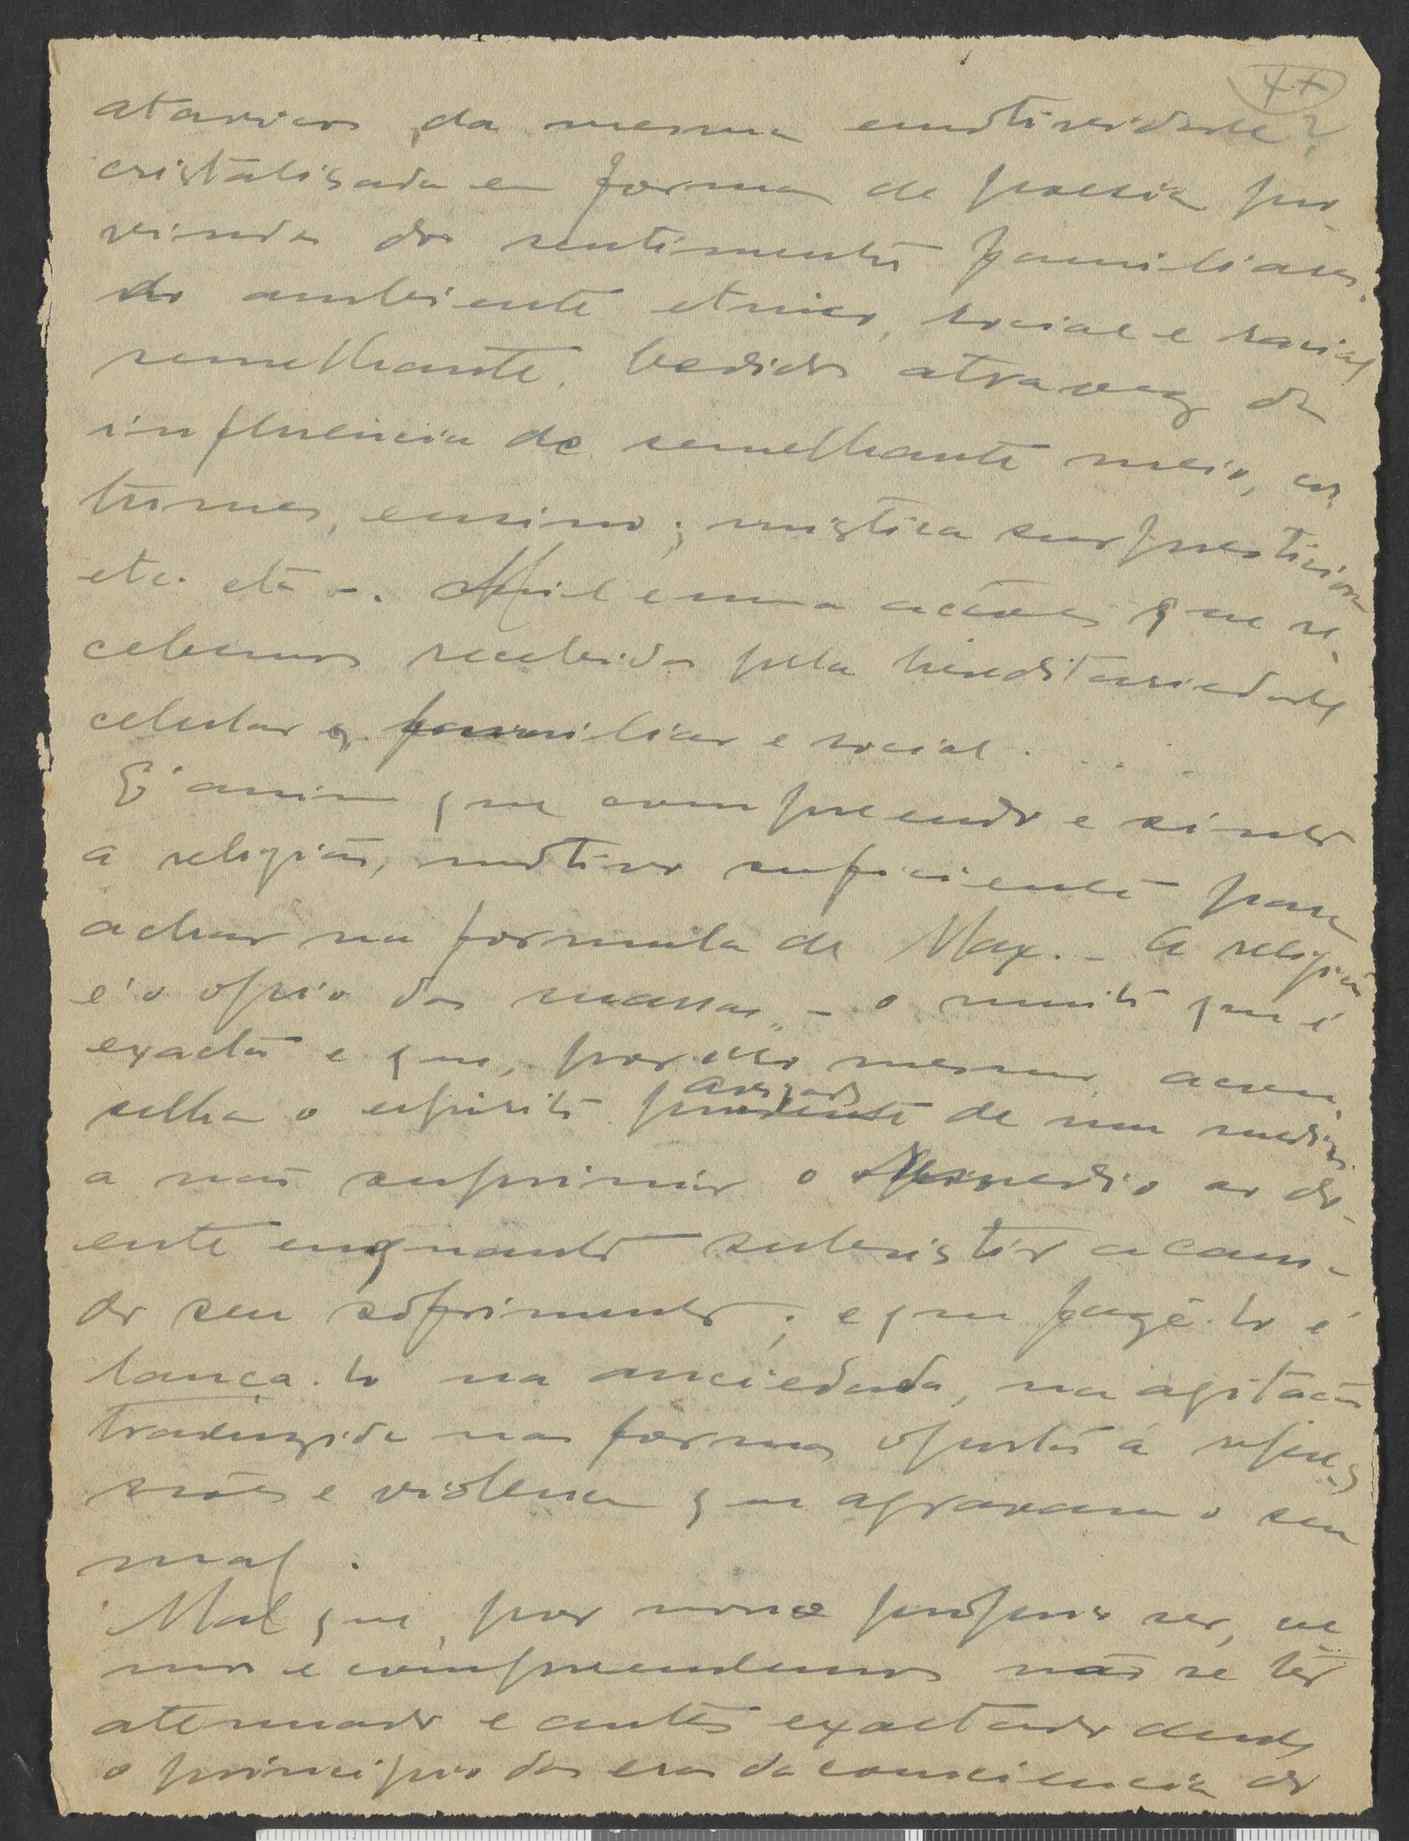 atavicos, da mesma emotividade?
cristalisada em formas de poesia pro
vindas dos sentimentos familiares,
do ambiente etnico, social e racial
semelhante, bedidos atravez da
influencia de semelhante meio, cos
tumes, ensino; mistica
etc. etc -. Mil e uma acções que re-
cebemos recebidas pela hereditariedade
celular, familiar e social. . . .
É assim que compreendo e sinto
a religião, motivo suficiente para
achar na formula de Max. - A religião
é o opio das massas,, - o muito que é
exacto e que, por isso mesmo, acon-
selha o espirito prudente avisado de um medico
a não suprimir o remedio ao do-
ente enquanto subsistir a causa
do seu sofrimento; e que fazê-lo é
lança-lo na anciedade, na agitação
traduzida nas formas
e violencia que agravam o seu
mal.
Mal que, por nosso proprio ser, ve
mos e compreendemos não se ter
atenuado e antes exactado desde
o principio das eras da consciencia do